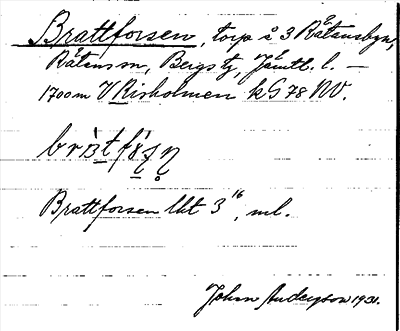 Brattforsen, torp å 3 Råtansbyn,
Råtans sn, Bergs tg, Jämtl. l. —
1700 m V Risholmen kG 78 NV.
Brattforsen lkt 3¹⁶, ml.
John Anderson 1931.